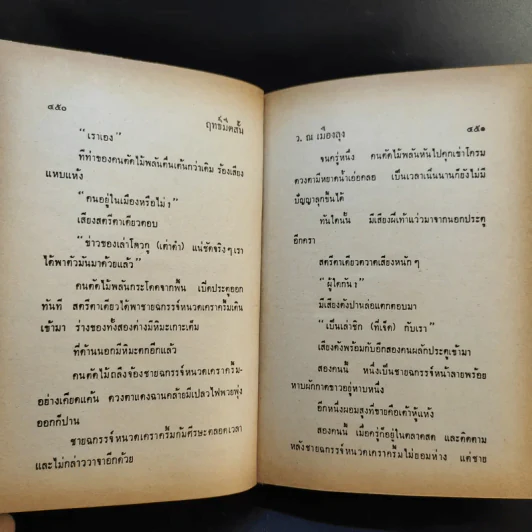 ๔๕๐
ฤทธิ์มีดสั้น
“เราเอง”
ทีท่าของคนตัดไม้พลันตื่นเต้นกว่าเดิม ร้องเสียง
แหบแห้ง
“คนอยู่ในเมืองหรือไม่?”
เสียงสตรีตาเดียวตอบ
“ข่าวของเล่าโตวกู (เต่าดำ) แน่ชัดจริงๆ เรา
ได้พาตัวมันมาด้วยแล้ว”
คนตัดไม้พลันกระโดดจากพื้น เปิดประตูออก
ทันที สตรีตาเดียวได้พาชายฉกรรจ์หนวดเคราครึ้มเดิน
เข้ามา ร่างของทั้งสองต่างมีหิมะเกาะเต็ม
ที่ด้านนอกมีหิมะตกอีกแล้ว
คนตัดไม้ถลึงจ้องชายฉกรรจ์หนวดเคราครึ้ม-
อย่างเคียดแค้น ดวงตาแดงฉานคล้ายมีเปลวไฟพวยพุ่ง
ออกก็ปาน
ชายฉกรรจ์หนวดเคราครึ้มก้มศีรษะตลอดเวลา
และไม่กล่าววาจาอีกด้วย
ว. ณ เมืองลุง
๔๕๑
จนครู่หนึ่ง คนตัดไม้พลันหันไปคุกเข่าโครม
ดวงตามีหยาดน้ำเอ่อคลอ เป็นเวลาเนิ่นนานก็ยังไม่มี
ปัญญาลุกขึ้นได้
ทันใดนั้น มีเสียงฝีเท้าแว่วมาจากนอกประตู
อีกครา
สตรีตาเดียวตวาดเสียงหนักๆ
“ผู้ใดกัน?”
มีเสียงดังปานล่อแตกตอบมา
“เป็นเล่าชิก (ที่เจ็ด) กับเรา”
เสียงดังพร้อมกับอีกสองคนผลักประตูเข้ามา
สองคนนี้ หนึ่งเป็นชายฉกรรจ์หน้าลายพร้อย
หาบผักกาดขาวอยู่หาบหนึ่ง
อีกหนึ่งผอมสูงที่ขายคือเต้าหู้แห้ง
สองคนนี้ เมื่อครู่ก็อยู่ในตลาดสด และติดตาม
หลังชายฉกรรจ์หนวดเคราครึ้มไม่ยอมห่าง แต่ชาย